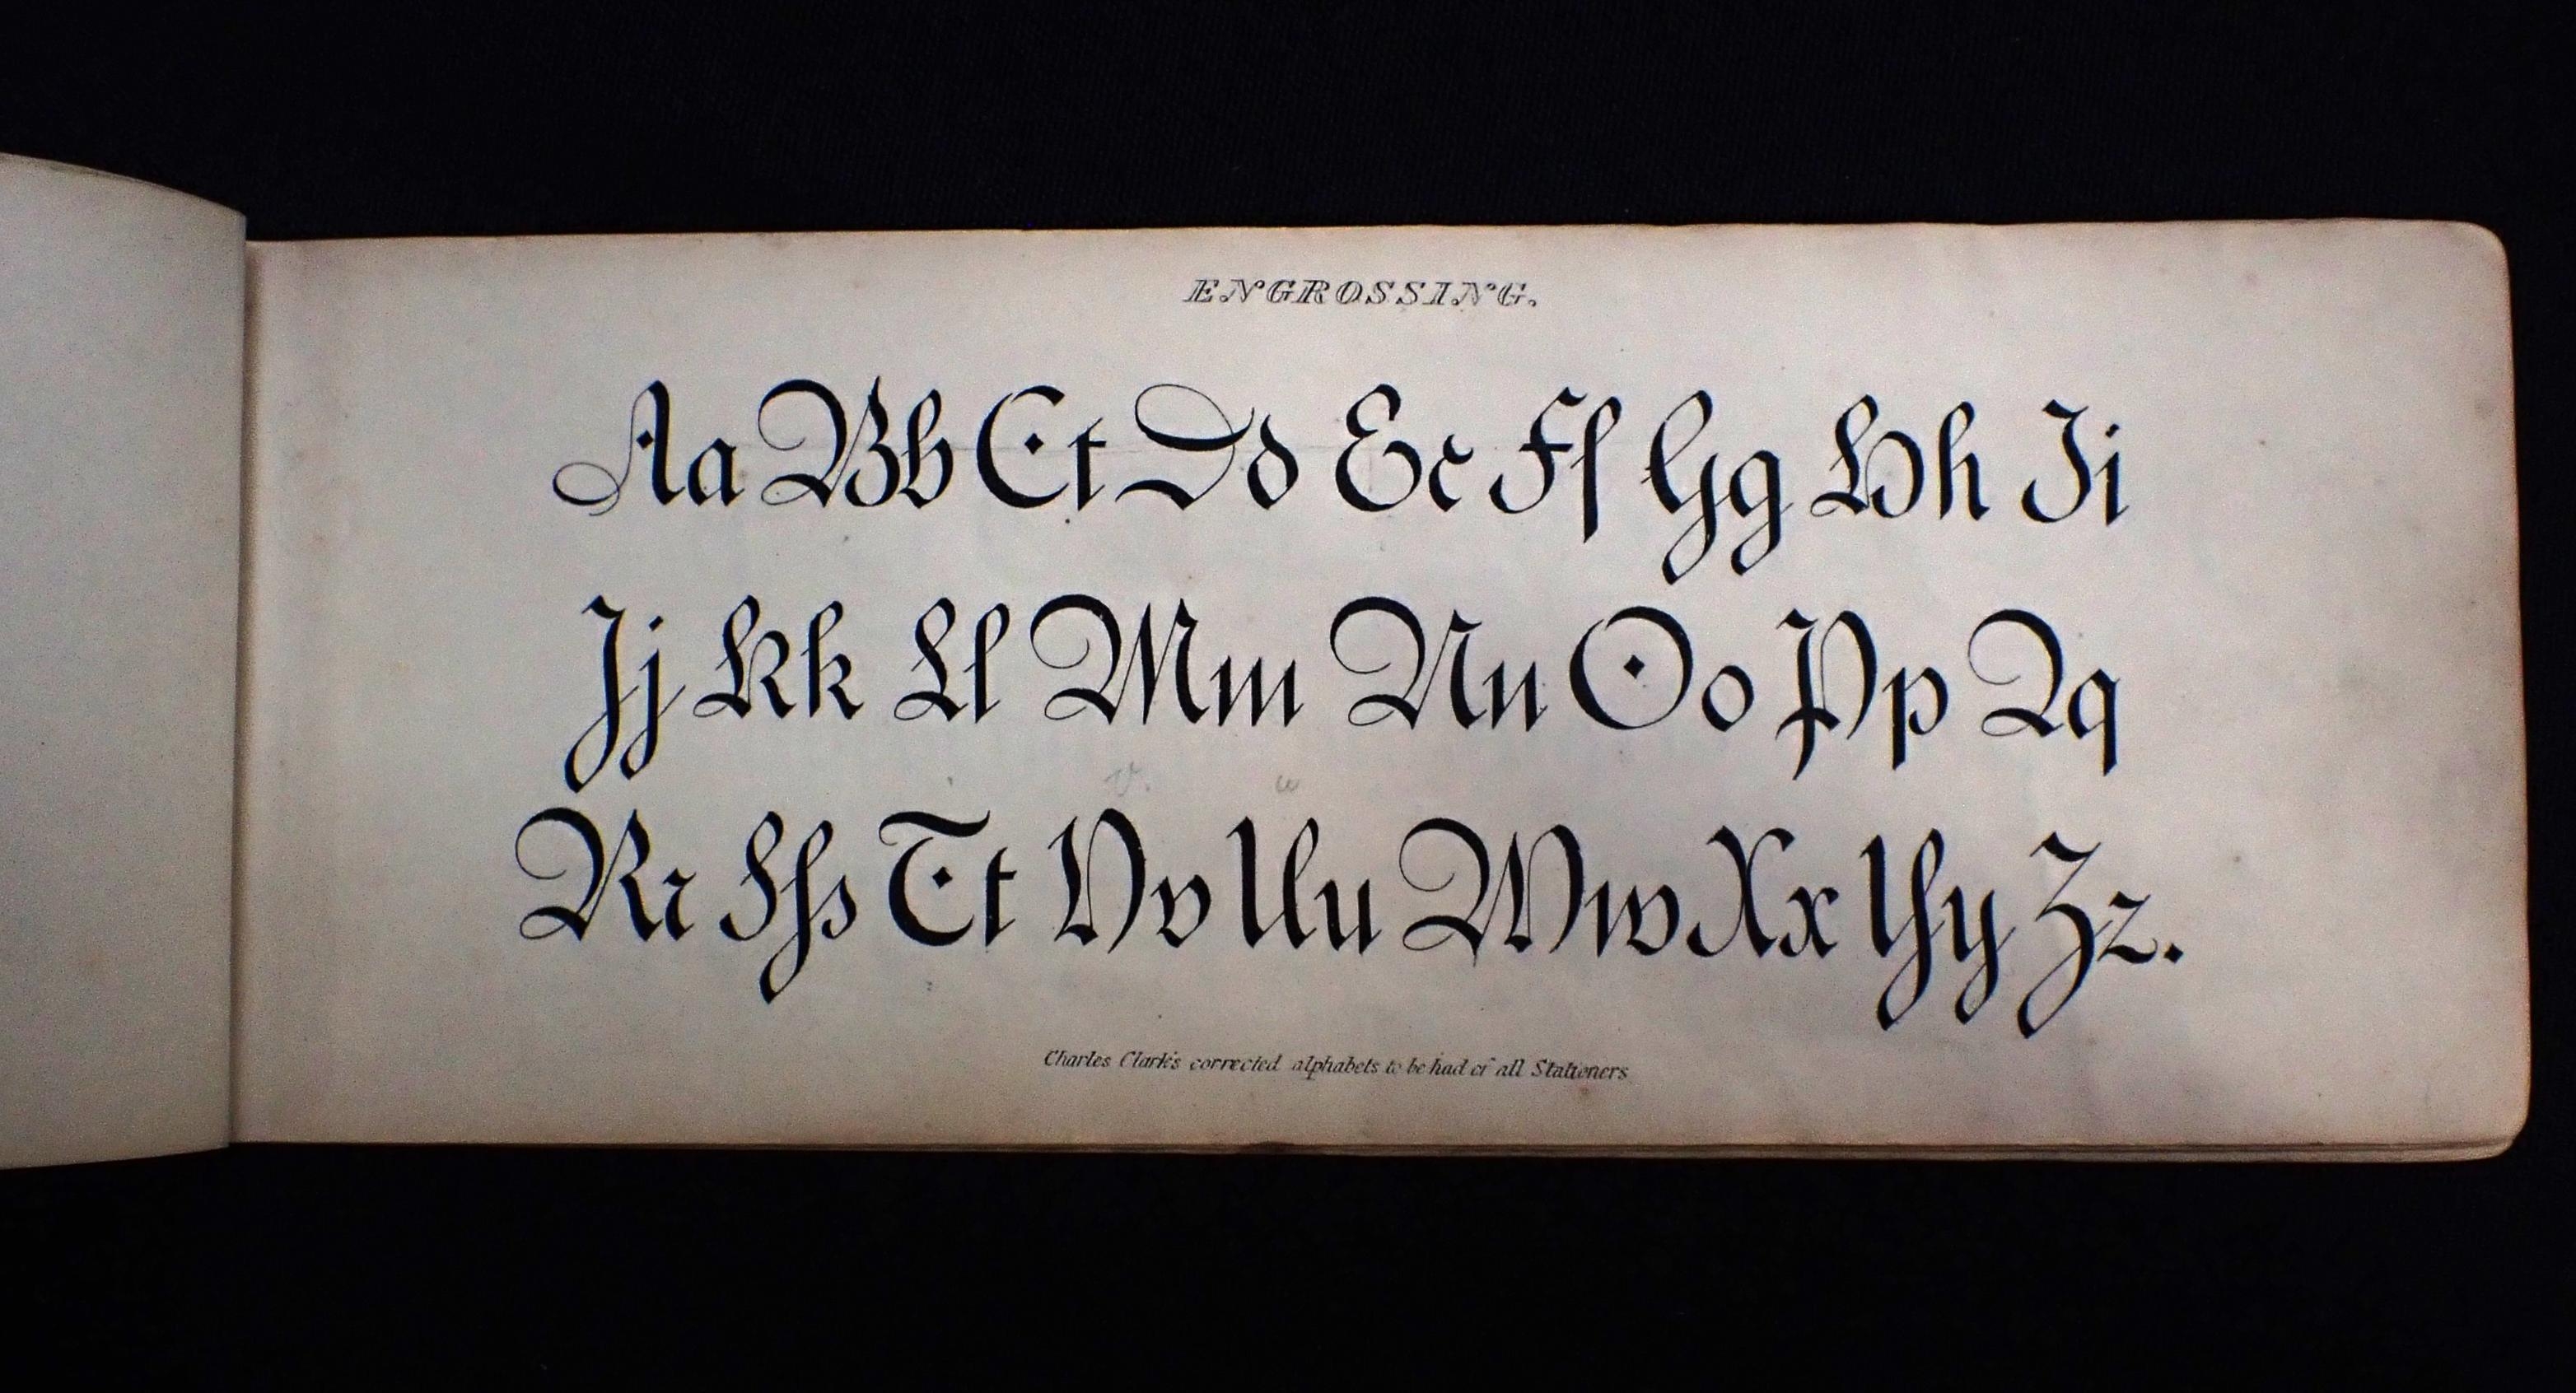 ENGROSSING.
Aa Bb Cc Dd Ee Ff Gg Hh Ii
Jj Kk Ll Mm Nn Oo Pp Qq
v. u
Rr Sſs Tt Vv Uu Ww Xx Yy Zz.
Charles Clark's corrected alphabets to be had of all Stationers